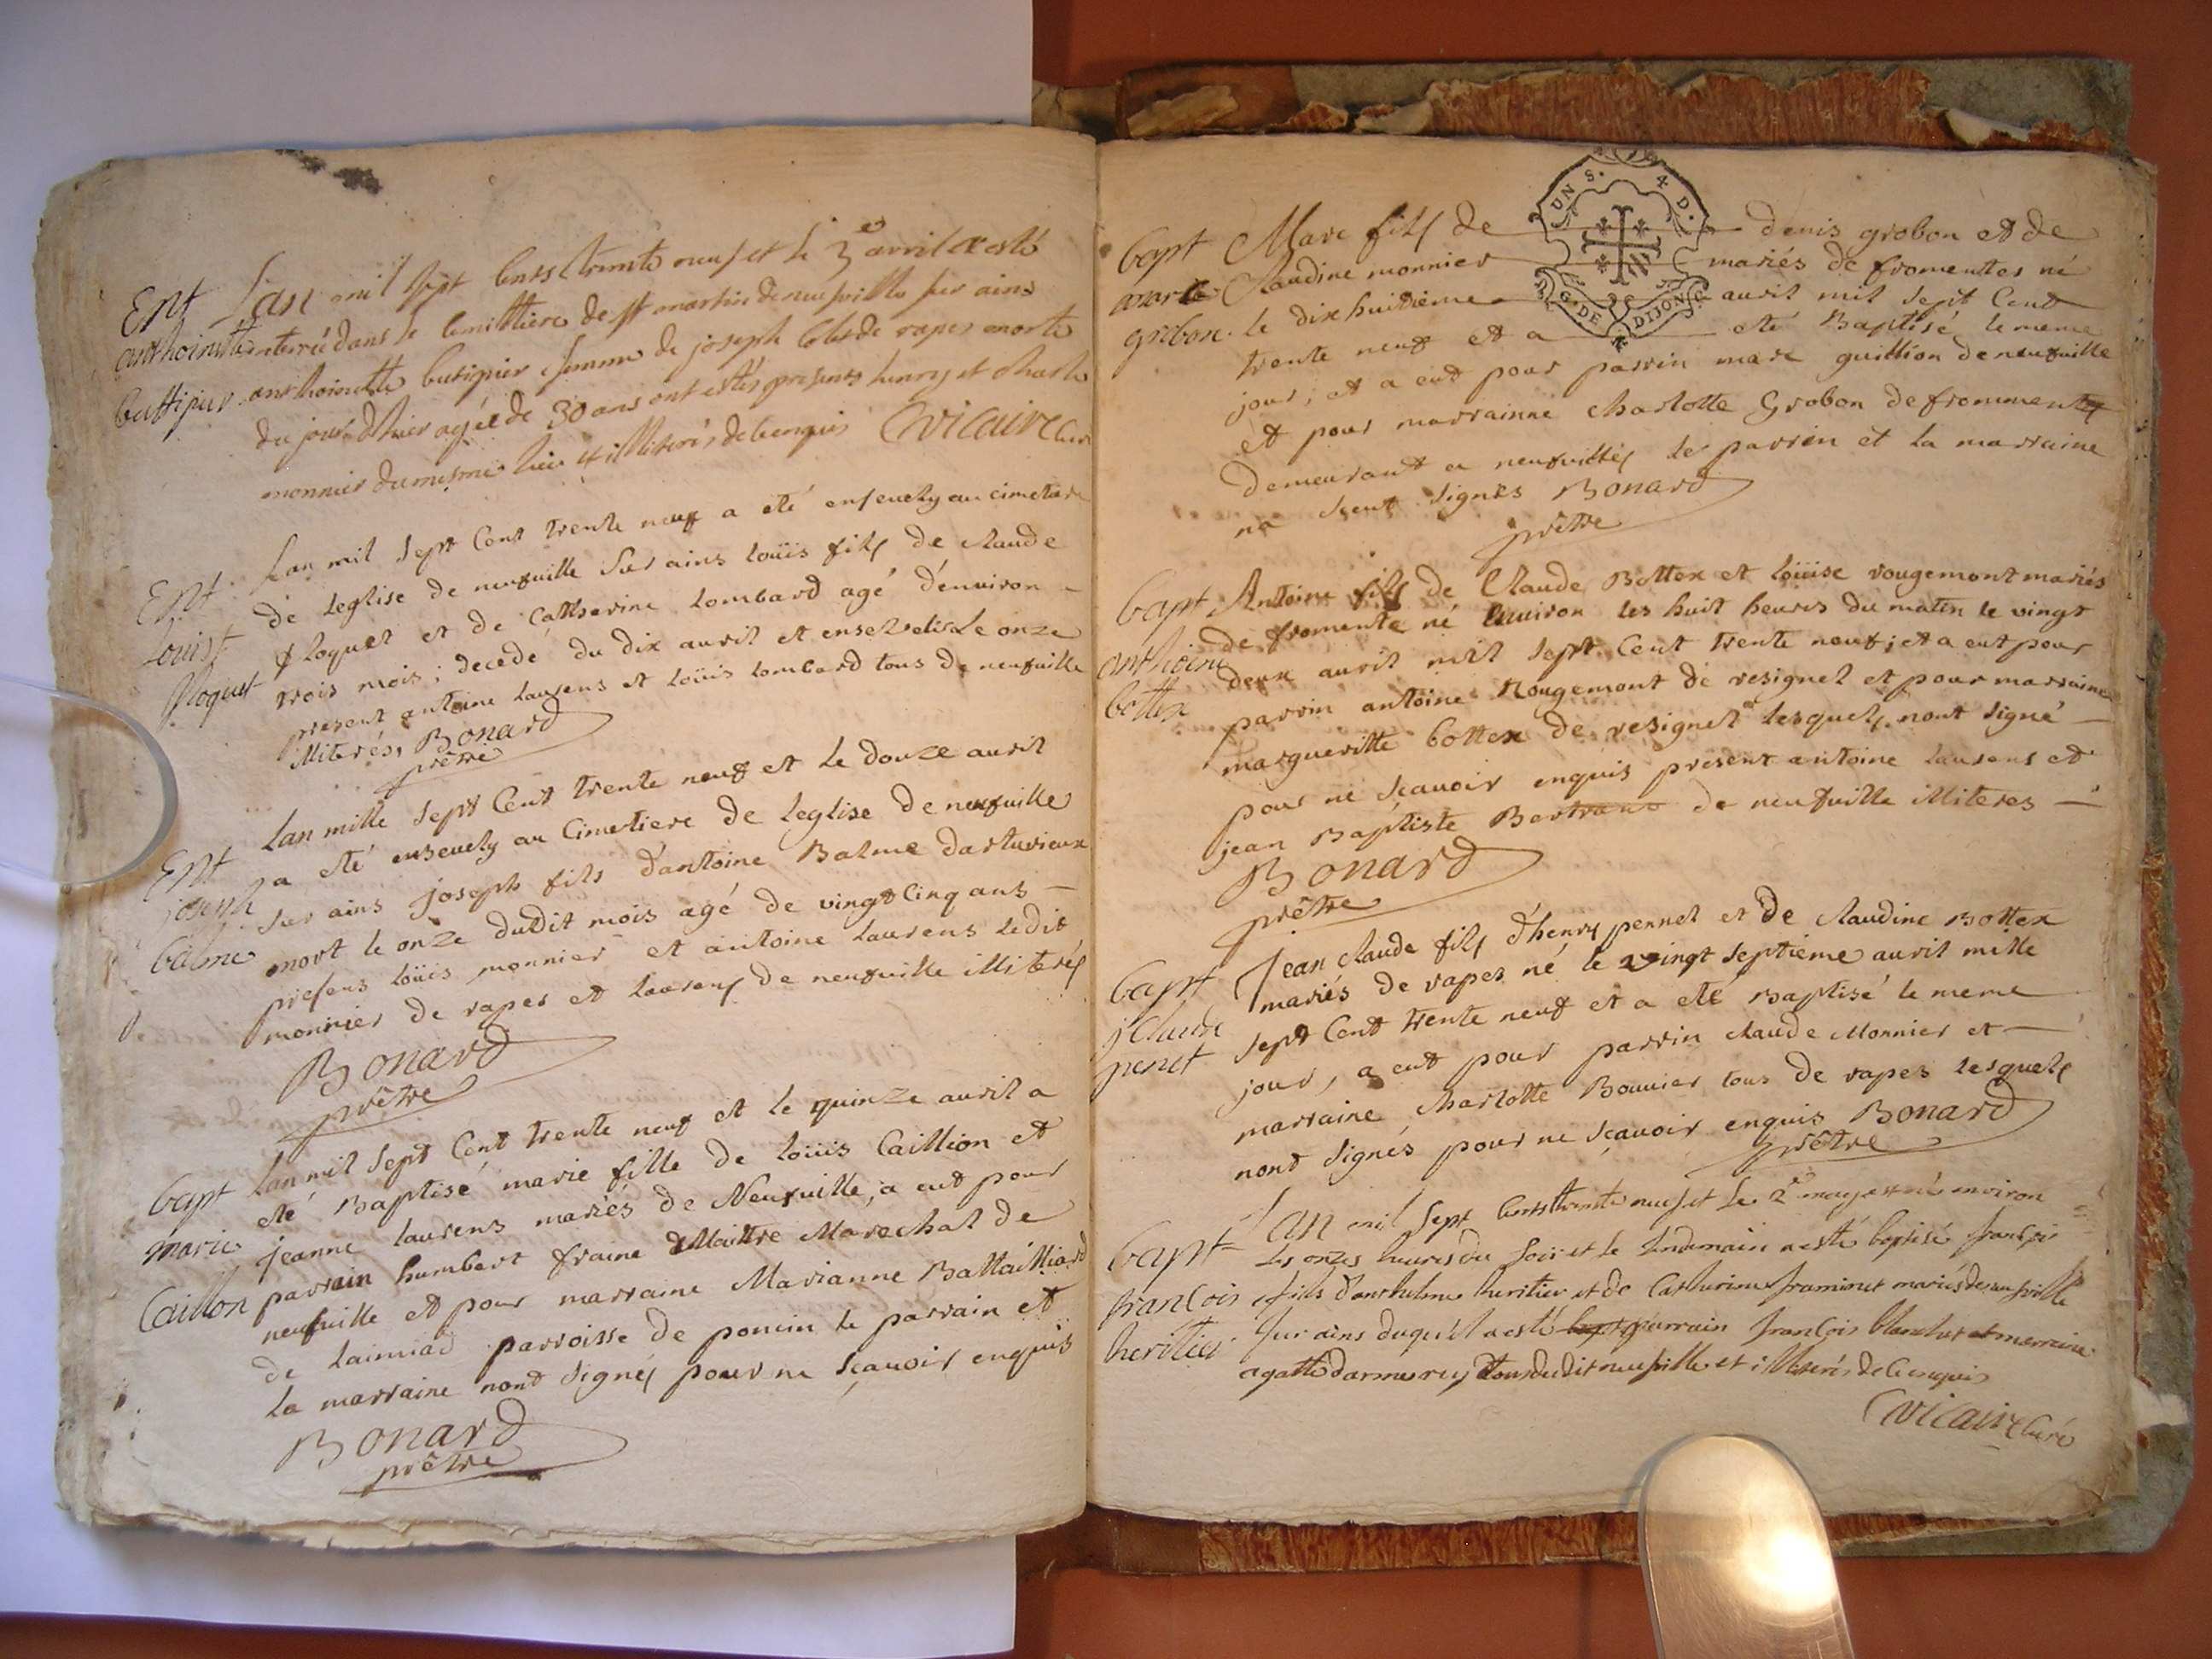 Ent
anthoinette
buttipier
Lan mil sept cents trente neuf et le 3e avril a esté
enterrée dans le cemittiere de st martin de neufville sur ains
anthoinette butipier femme de joseph de rapes morte
du jour d'hier agée de 30 ans ont estés presents henry et charle
monnier du mesme lieu illiterés de ce enquis Vicaire Curé
Ent
Louis
floquet
Lan mil sept Cent trente neuf a été enseuely au cimetiere
de leglise de neufuille sur ains loüis fils de claude
floquet et de Catherine lombard agé denuiron –
trois mois; decedé du dix auril et enselvelis Le onze
present antoine laurens et loüis lombard tous de neufuille
illiterés, Bonard
prêtre
Ent
joseph
balme
Lan mille sept Cent trente neuf et le douze auril
a eté enseuely au Cimetiere de leglise de neufuille
sur ains joseph fils d'antoine Balme darturieux
mort le onze dudit mois agé de vingt Cinq ans –
presens loüis monnier et antoine laurens ledit
monnier de rapes et laurens de neufuille illiterés
Bonard
prêtre
bapt
marie
Caillon
Lan mil sept Cent trente neuf et le quinze auril a
eté Baptisé marie fille de loüis Caillion et
jeanne laurens mariés de Neufuille, a eut pour
parrain humbert fraine Maittre Marechal de
neufuille et pour marraine Marianne Battailliard
de laimiad parroisse de poncin le parrain et
la marraine nont signés pour ne sçauoir enquis
Bonard
prêtre
bapt
marc
grobon
Marc fils de denis grobon et de
Claudine monnier mariés de fromentes né
le dix huitieme auril mil sept Cent
trente neuf et a eté Baptisé le meme
jour; et a eut pour parrin marc guillion de neufuille
et pour marrainne charlotte Grobon de frommentes
demeurant a neufuilles le parrin et la marraine
na sceut signés Bonard
prêtre
UN S. 4 D.
G. DE DIJON
bapt
anthoine
bottex
Antoine fils de Claude Bottex et loüise rougemont mariés
de fromente né enuiron les huit heures du matin le vingt
deux auril mil sept Cent trente neuf; et a eut pour
parrin antoine Rougemont de resignel et pour marraine
margueritte bottex de resignel lesquels nont signé –
pour ne sçauoir enquis present antoine laurens et
jean Baptiste Bertrand de neufuille illiteres –
Bonard
prêtre
bapt
j Claude
penet
Jean claude fils d'henry pennet et de claudine Bottex
mariés de rapes né le vingt septieme auril mille
sept Cent trente neuf et a eté Baptisé le meme
jour, a eut pour parrin claude Monnier et –
marraine charlotte Bouuier tous de rapes lesquels
nont signés pour ne sçauoir enquis Bonard
prêtre
bapt
françois
heritier
Lan mil sept cents trente neuf et le 2e may est né environ
les onzes heures du soir et le lendemain a esté baptisé françois
fils d'anthelme heritier et de Catherine framinet mariés de neufville
sur ains duquel a esté parrain françois blanchet et marraine
agathe darmerey tous dudit neufville et illiterés de ce enquis
Vicaire Curé